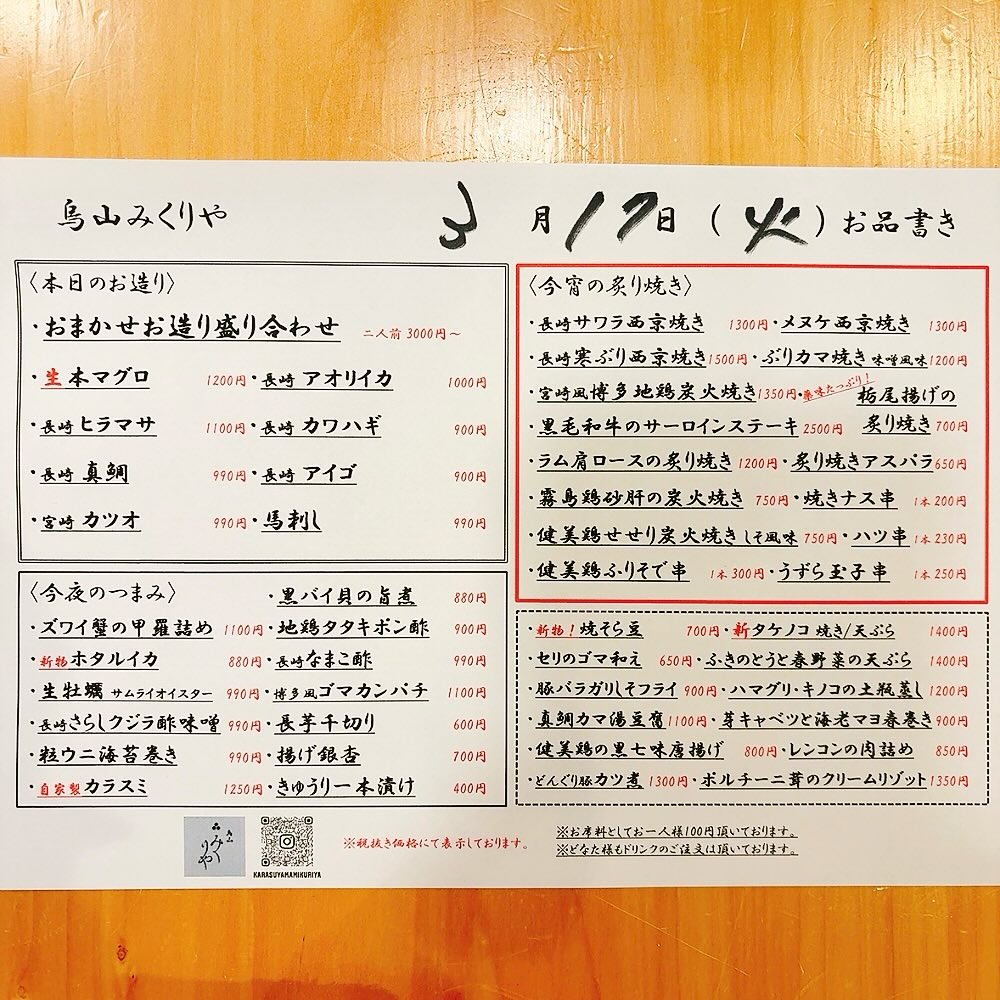 烏山みくりや 3月17日(火)お品書き
〈本日のお造り〉
・おまかせお造り盛り合わせ 二人前 3000円～
・生本マグロ 1200円・長崎 アオリイカ 1000円
・長崎 ヒラマサ 1100円・長崎 カワハギ 900円
・長崎 真鯛 990円・長崎 アイゴ 900円
・宮崎 カツオ 990円・馬刺し 990円
〈今夜のつまみ〉 ・黒バイ貝の旨煮 880円
・ズワイ蟹の甲羅詰め 1100円・地鶏タタキポン酢 900円
・新物ホタルイカ 880円・長崎なまこ酢 990円
・生牡蠣 サムライオイスター 990円・博多風ゴマカンパチ 1100円
・長崎さらしクジラ酢味噌 990円・長芋千切り 600円
・粒ウニ海苔巻き 990円・揚げ銀杏 700円
・自家製カラスミ 1250円・きゅうり一本漬け 400円
〈今宵の炙り焼き〉
・長崎サワラ西京焼き 1300円・メヌケ西京焼き 1300円
・長崎寒ぶり西京焼き 1500円・ぶりカマ焼き 味噌風味 1200円
・宮崎風博多地鶏炭火焼き 1350円・薬味たっぷり!栃尾揚げの
・黒毛和牛のサーロインステーキ 2500円 炙り焼き 700円
・ラム肩ロースの炙り焼き 1200円・炙り焼きアスパラ 650円
・霧島鶏砂肝の炭火焼き 750円・焼きナス串 1本 200円
・健美鶏せせり炭火焼き しそ風味 750円・ハツ串 1本 230円
・健美鶏ふりそで串 1本 300円・うずら玉子串 1本 250円
・新物!焼そら豆 700円・新タケノコ 焼き/天ぷら 1400円
・セリのゴマ和え 650円・ふきのとうと春野菜の天ぷら 1400円
・豚バラガリしそフライ 900円・ハマグリ・キノコの土瓶蒸し 1200円
・真鯛カマ湯豆腐 1100円・芽キャベツと海老マヨ春巻き 900円
・健美鶏の黒七味唐揚げ 800円・レンコンの肉詰め 850円
・どんぐり豚カツ煮 1300円・ポルチーニ茸のクリームリゾット 1350円
みくりや
KARASUYAMAMIKURIYA
※税抜き価格にて表示しております。
※お席料としてお一人様100円頂いております。
※どなた様もドリンクのご注文は頂いております。